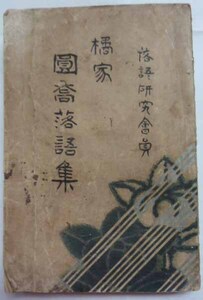 落語研究會員
橘家
圓喬落語集